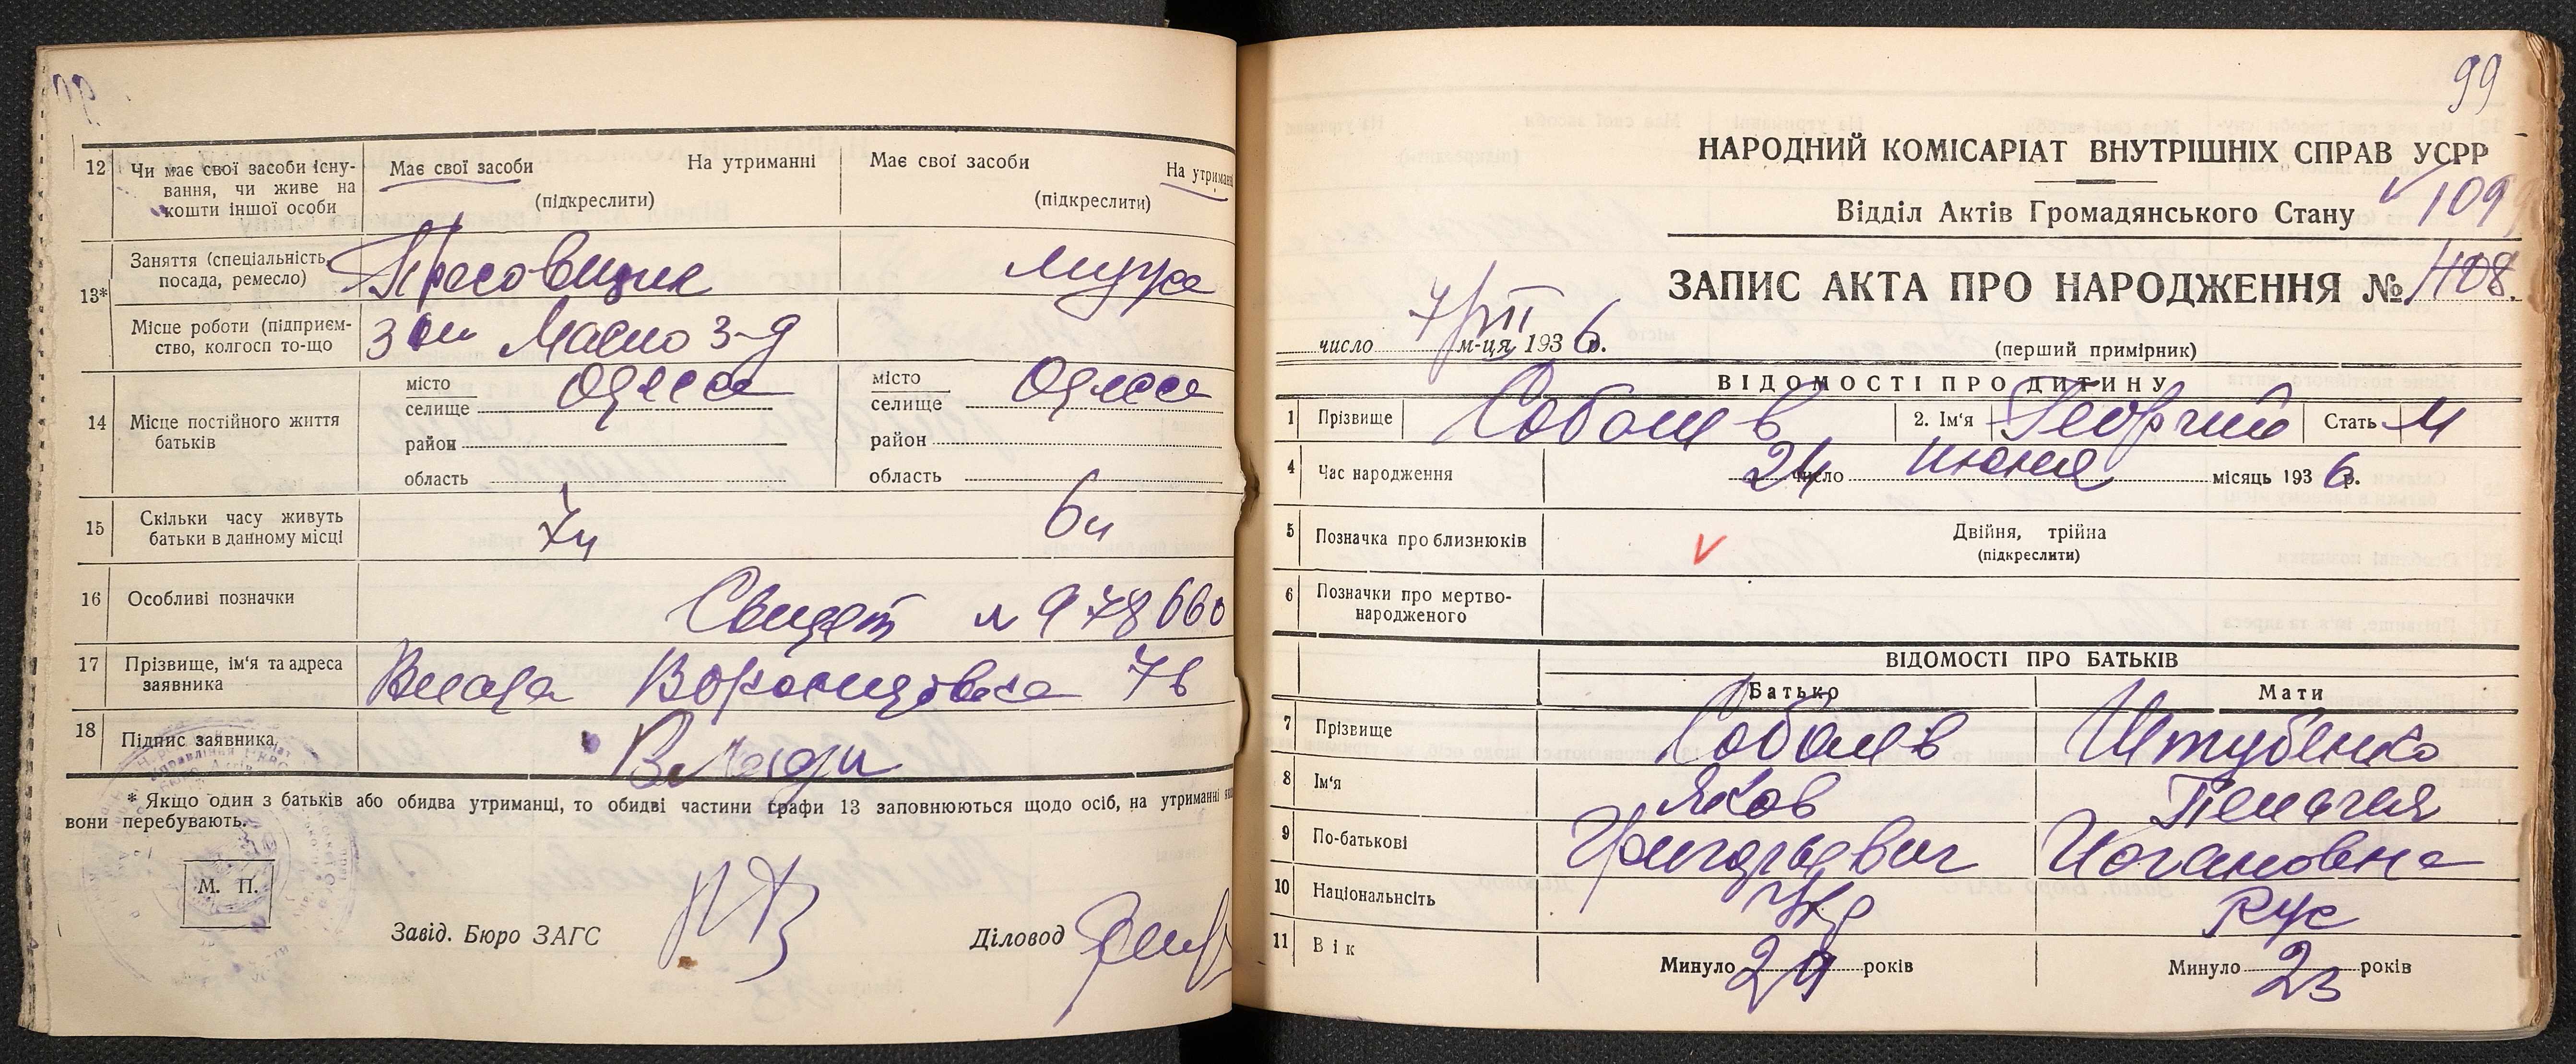 12 Чи має свої засоби існу-
вання, чи живе на
кошти іншої особи
Має свої засоби На утриманні
(підкреслити)
Має свої засоби На утриманні
(підкреслити)
13* Заняття (спеціальність,
посада, ремесло)
мужа
Місце роботи (підприєм-
ство, колгосп то-що
Масло з-д
14 Місце постійного життя
батьків
місто Одесса
селище
район
область
місто Одесса
селище
район
область
15 Скільки часу живуть
батьки в данному місці
16 Особливі позначки
Свидет № 978660
17 Прізвище, ім'я та адреса
заявника
18 Підпис заявника
* Якщо один з батьків або обидва утриманці, то обидві частини графи 13 заповнюються щодо осіб, на утриманні
вони перебувають.
М. П.
Завід. Бюро ЗАГС
Діловод
99
НАРОДНИЙ КОМІСАРІАТ ВНУТРІШНІХ СПРАВ УСРР
Відділ Актів Громадянського Стану
109
ЗАПИС АКТА ПРО НАРОДЖЕННЯ № 1408.
7/VII
число м-ця 1936 р.
(перший примірник)
ВІДОМОСТІ ПРО ДИТИНУ
1 Прізвище 2. Ім'я Георгий Стать М
4 Час народження 24 число июня місяць 1936 р.
5 Позначка про близнюків
Двійня, трійна
(підкреслити)
6 Позначки про мертво-
народженого
ВІДОМОСТІ ПРО БАТЬКІВ
Батько Мати
7 Прізвище Штубенко
8 Ім'я Яков Пелагея
9 По-батькові Григорьевич Иогановна
10 Національність Укр Рус
11 Вік
Минуло 29 років Минуло 23 років